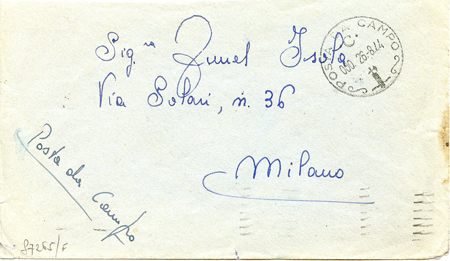 Sig.na Zunel Isola
Via Solari, n. 36
Milano
Posta da Campo
POSTA DA CAMPO
C.
050. 26-8.44
87265/F